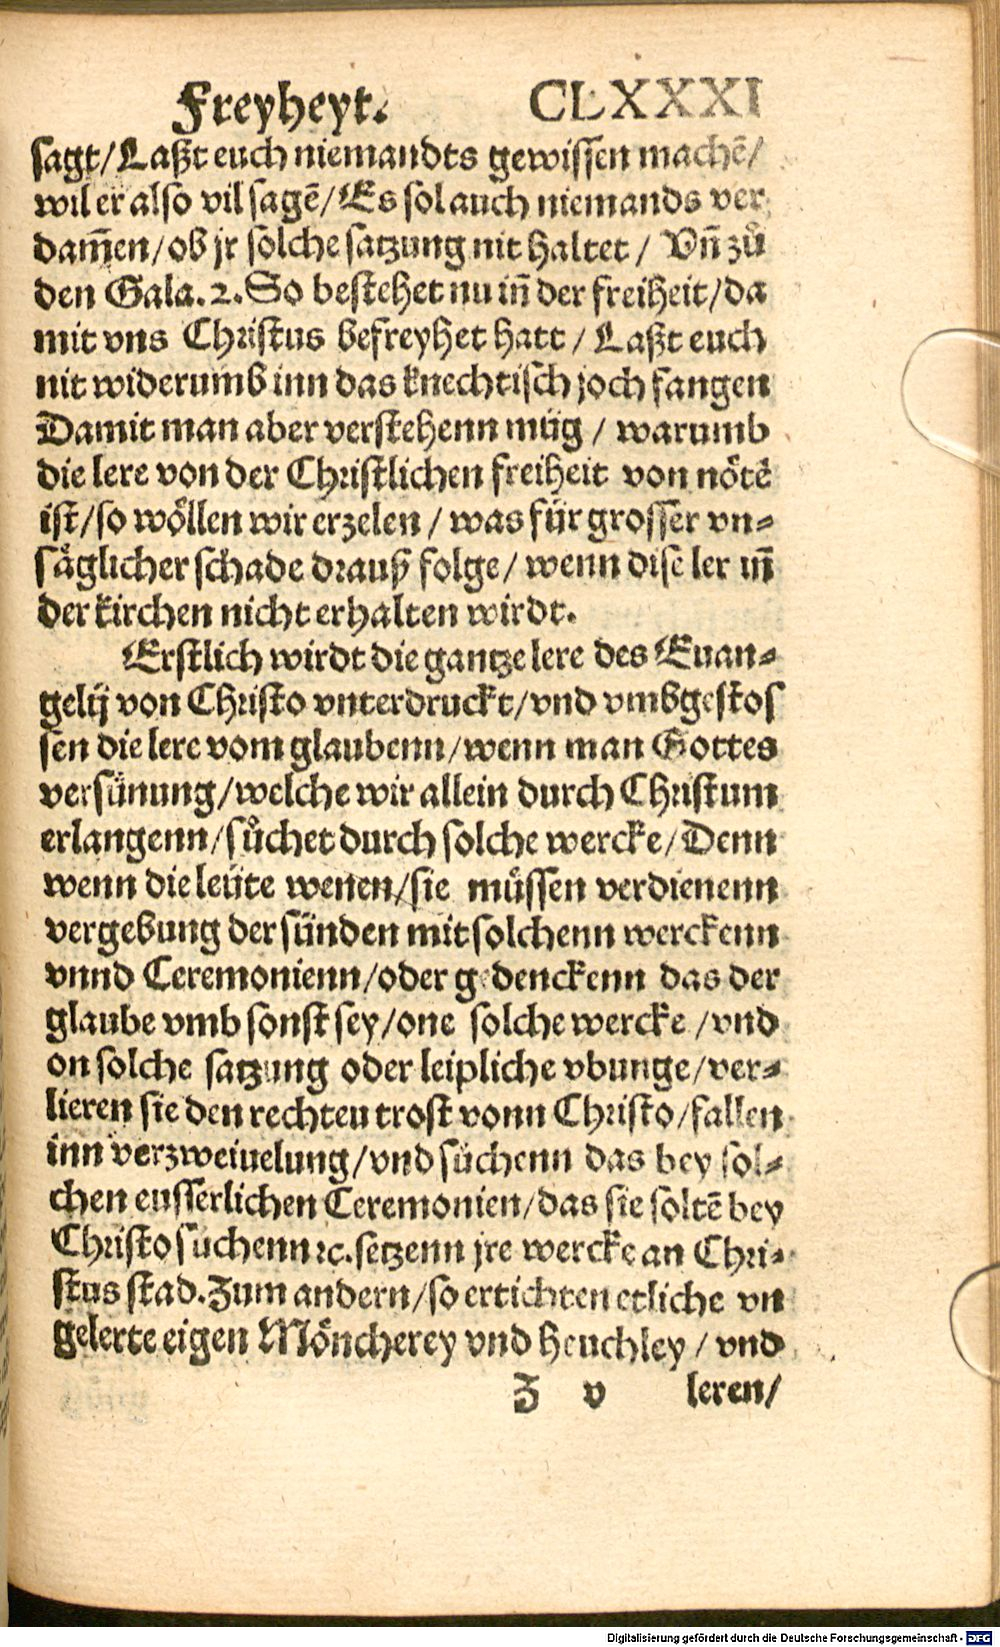 Freyheyt. CLXXXI
sagt/Laßt euch niemandts gewissen machē/
wil er also vil sagē/Es sol auch niemands ver
dam̄en/ob jr solche satzung nit haltet/ Vn̄ zů
den Gala.2.So bestehet nu in̄ der freiheit/da
mit vns Christus befreyhet hatt/ Laßt euch
nit widerumb inn das knechtisch joch fangen
Damit man aber verstehenn müg/ warumb
die lere von der Christlichen freiheit von nötē
ist/so wöllen wir erzelen/ was für grosser vn-
säglicher schade drauß folge/ wenn dise ler in̄
der kirchen nicht erhalten wirdt.
Erstlich wirdt die gantze lere des Euan-
gelij von Christo vnterdruckt/vnd vmbgestos
sen die lere vom glaubenn/wenn man Gottes
versünung/welche wir allein durch Christum
erlangenn/sůchet durch solche wercke/Denn
wenn die leüte wenen/sie müssen verdienenn
vergebung der sünden mit solchenn werckenn
vnnd Ceremonienn/oder gedenckenn das der
glaube vmb sonst sey/one solche wercke /vnd
on solche satzung oder leipliche vbunge/ver-
lieren sie den rechten trost vonn Christo/fallen
inn verzweiuelung/vnd süchenn das bey sol-
chen eusserlichen Ceremonien/das sie soltē bey
Christo süchenn ꝛc.setzenn jre wercke an Chri-
stus stad.Zum andern/so ertichten etliche vn
gelerte eigen Möncherey vnd heuchley/ vnd
Z v leren/
Digitalisierung gefördert durch die Deutsche Forschungsgemeinschaft - DFG